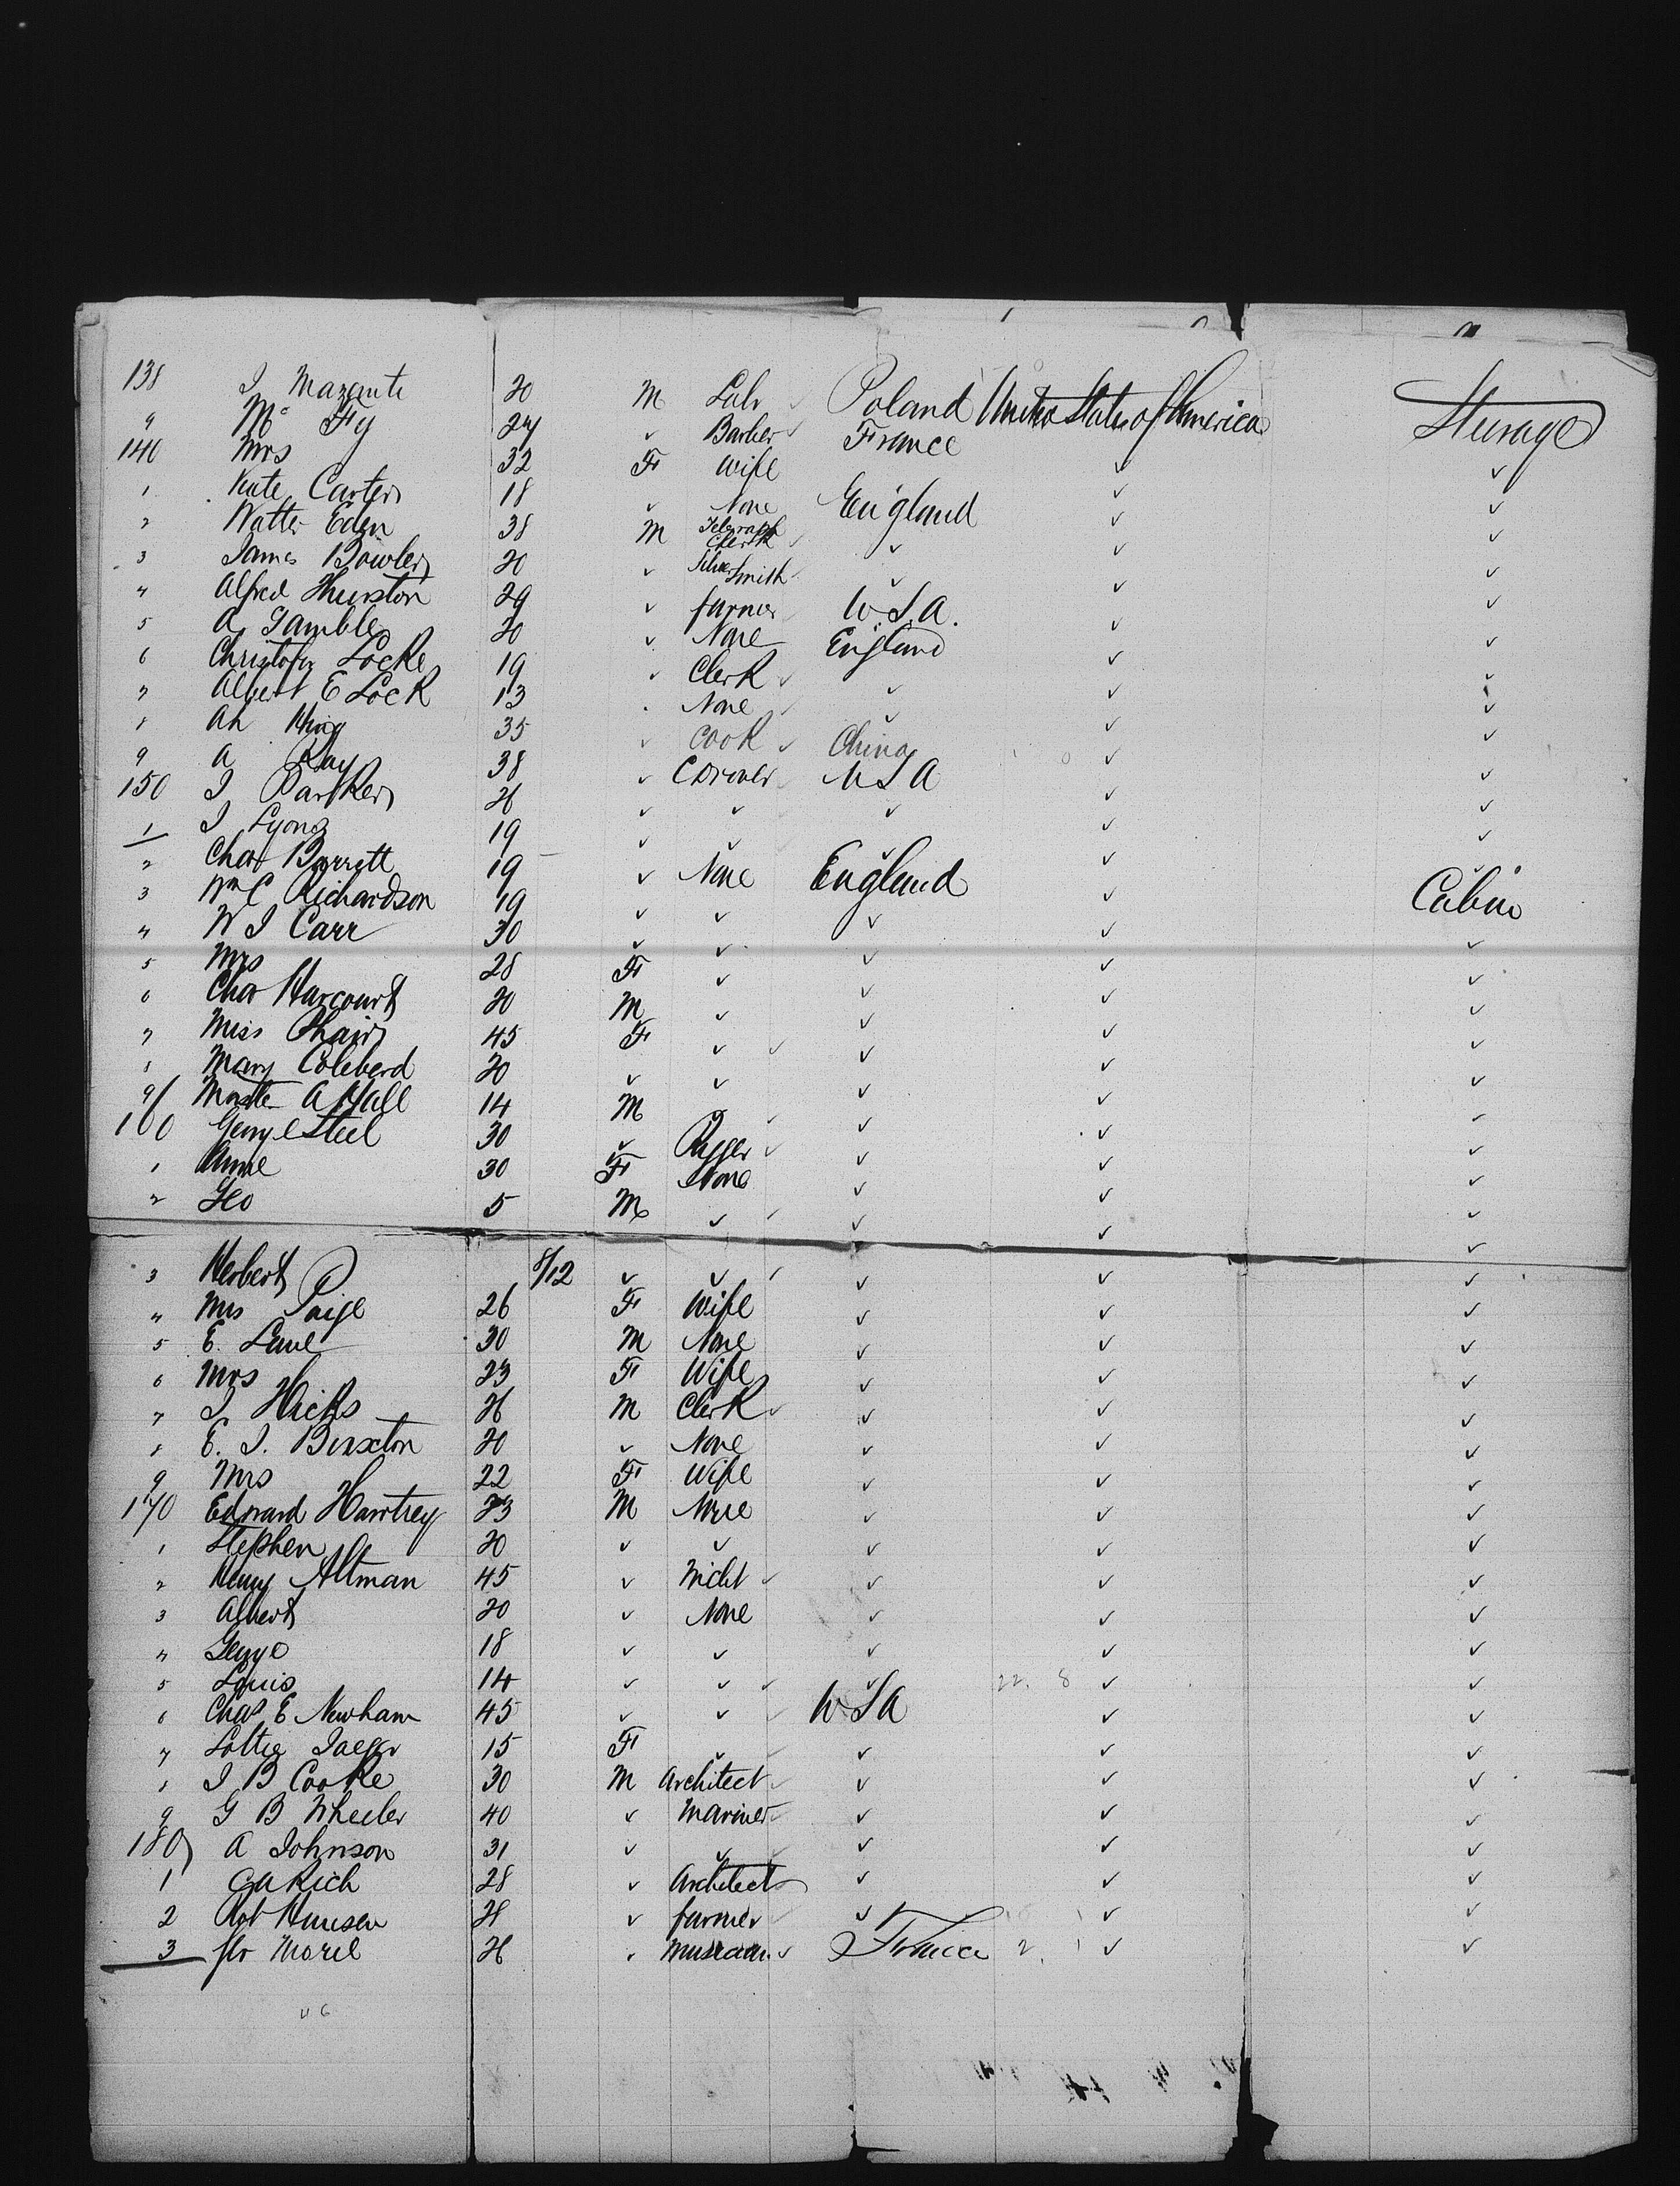 138 J Mazente 20 M Labr Poland United States of America Steerage
" Mr Fy 27 ✓ Barber France
140 Mrs 32 F Wife ✓ ✓
1 Kate Carter 18 ✓ None England ✓ ✓
2 Walter Eden 38 M Telegraph Clerk ✓ ✓ ✓
3 James Bowler 20 ✓ Silver Smith ✓ ✓ ✓
4 Alfred Thurston 29 ✓ farmer U.S.A. ✓ ✓
5 A Gamble 20 ✓ None England ✓ ✓
6 Christofer Locke 19 ✓ Clerk ✓ ✓ ✓
7 Albert E Lock 13 ✓ None ✓ ✓ ✓
8 Ah 35 ✓ Cook China ✓ ✓
9 A Ray 38 ✓ U S A ✓ ✓
150 J Parker 26 ✓ ✓ ✓ ✓ ✓
1 J Lyons 19 ✓ ✓ ✓ ✓ ✓
2 Chas Barrett 19 ✓ None England ✓ Cabin
3 Wm C Richardson 19 ✓ ✓ ✓ ✓ ✓
4 W J Carr 30 ✓ ✓ ✓ ✓ ✓
5 Mrs 28 F ✓ ✓ ✓ ✓
6 Chas Harcourt 20 M ✓ ✓ ✓ ✓
7 Miss Phair 45 F ✓ ✓ ✓ ✓
8 Mary Coleberd 20 ✓ ✓ ✓ ✓ ✓
9 Master A Hall 14 M ✓ ✓ ✓ ✓
160 George Steel 30 ✓ Rigger ✓ ✓ ✓
1 Anne 30 F None ✓ ✓ ✓
2 Geo 5 M ✓ ✓ ✓ ✓
3 Herbert 8/12 ✓ ✓ ✓ ✓ ✓
4 Mrs Paige 26 F Wife ✓ ✓ ✓
5 E. Lane 30 M None ✓ ✓ ✓
6 Mrs 23 F Wife ✓ ✓ ✓
7 J Hicks 26 M Clerk ✓ ✓ ✓
8 E. J. Buxton 20 ✓ None ✓ ✓ ✓
9 Mrs 22 F Wife ✓ ✓ ✓
170 Edward Hawtrey 23 M None ✓ ✓ ✓
1 Stephen 20 ✓ ✓ ✓ ✓ ✓
2 Henry Altman 45 ✓ Mcht ✓ ✓ ✓
3 Albert 20 ✓ None ✓ ✓ ✓
4 George 18 ✓ ✓ ✓ ✓ ✓
5 Louis 14 ✓ ✓ ✓ ✓ ✓
6 Chas E Newham 45 ✓ ✓ U S A ✓ ✓
7 Lottie Jaeger 15 F ✓ ✓ ✓ ✓
8 J B Cooke 30 M Architect ✓ ✓ ✓
9 G B Wheeler 40 ✓ Mariner ✓ ✓ ✓
180 A Johnson 31 ✓ ✓ ✓ ✓ ✓
1 G A Rich 28 ✓ Architect ✓ ✓ ✓
2 Robt Hansen 28 ✓ farmer ✓ ✓ ✓
3 Morel 26 ✓ Musician France ✓ ✓